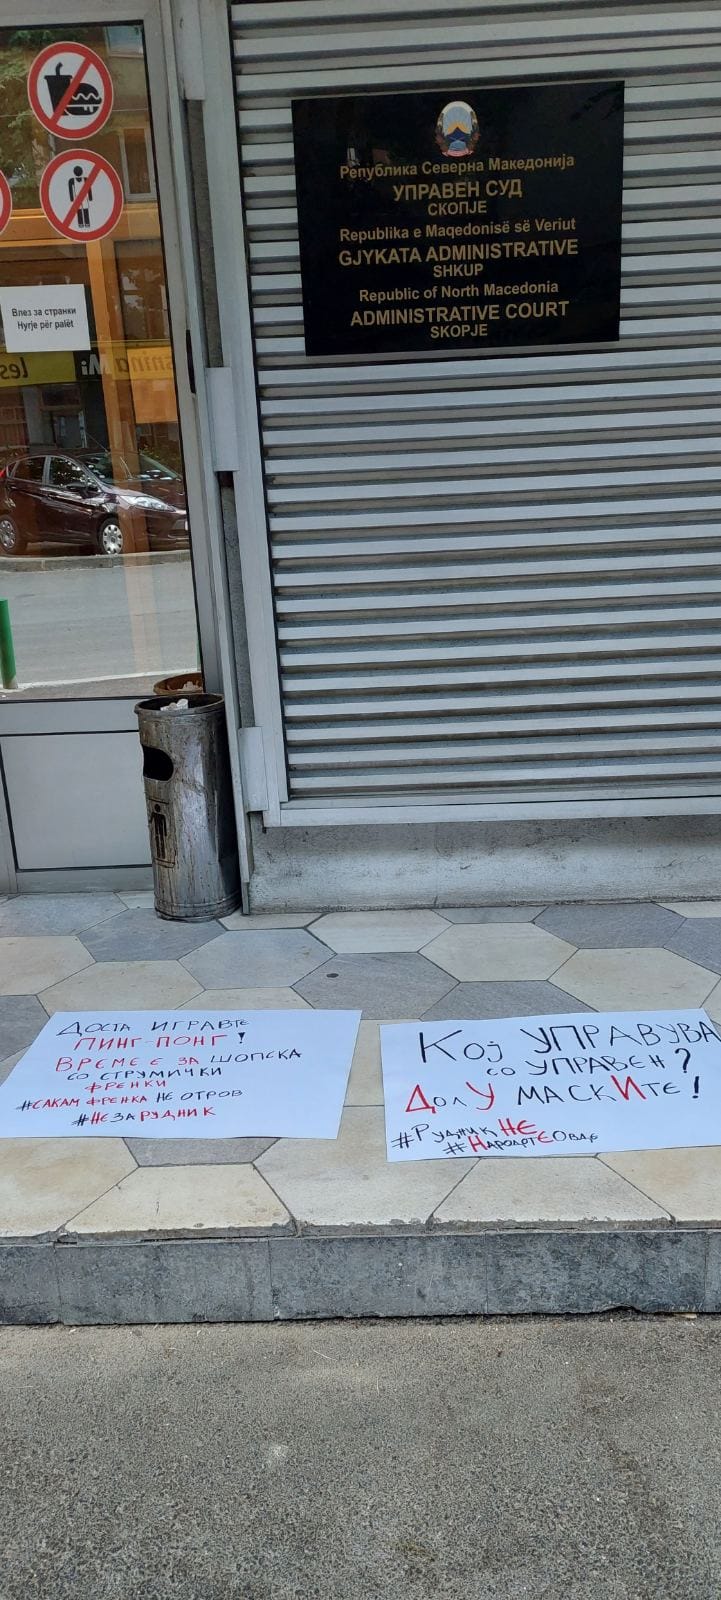 Република Северна Македонија
УПРАВЕН СУД
СКОПЈЕ
Republika e Maqedonisë së Veriut
GJYKATA ADMINISTRATIVE
SHKUP
Republic of North Macedonia
ADMINISTRATIVE COURT
SKOPJE
Влез за странки
Hyrje për palët
ДОСТА ИГРАВТЕ
ПИНГ-ПОНГ!
ВРЕМЕ Е ЗА ШОПСКА
СО СТРУМИЧКИ
ФРЕНКИ
#САКАМ ФРЕНКА НЕ ОТРОВ
#НЕЗАРУДНИК
КОЈ УПРАВУВА
СО УПРАВЕН?
ДОЛУ МАСКИТЕ!
#РУДНИКНЕ
#НАРОДОТЕОВДЕ